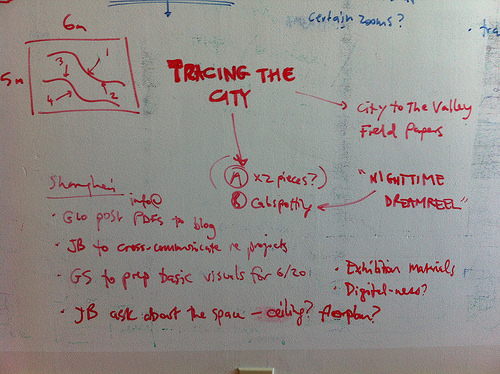 certain zooms?
6m
5m
3
1
4
2
TRACING THE
CITY
City to the Valley
Field Papers
A x2 pieces?)
B Cabspotting
"NIGHTTIME
DREAMREEL"
Shanghai
info@
· GEO post PDFs to blog
· JB to cross-communicate re projects
· GS to prep basic visuals for 6/20
· JB ask about the space - ceiling? floorplan?
· Exhibition materials
· Digital-ness?